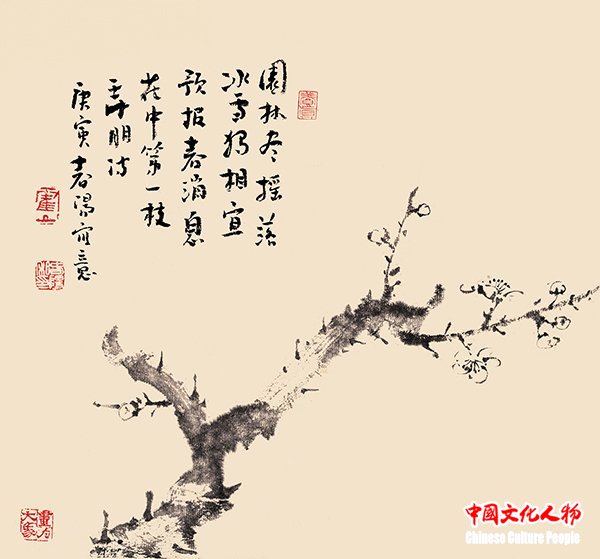 園林尽摇落
冰雪独相宜
预报春消息
花中第一枝
王十朋诗
庚寅春阳写意
中国文化人物
Chinese Culture People